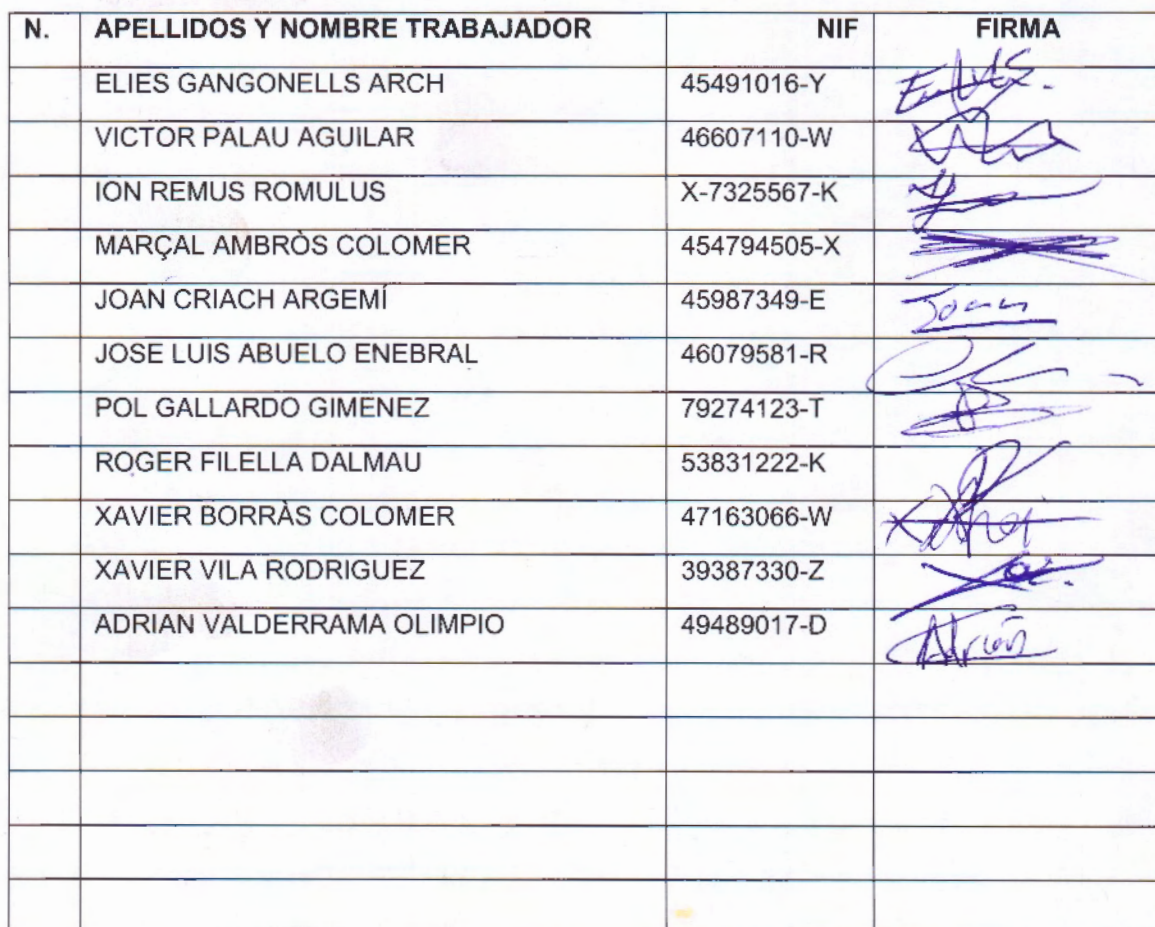 N. APELLIDOS Y NOMBRE TRABAJADOR NIF FIRMA
ELIES GANGONELLS ARCH 45491016-Y
VICTOR PALAU AGUILAR 46607110-W
ION REMUS ROMULUS X-7325567-K
MARÇAL AMBRÒS COLOMER 454794505-X
JOAN CRIACH ARGEMÍ 45987349-E Joan
JOSE LUIS ABUELO ENEBRAL 46079581-R
POL GALLARDO GIMENEZ 79274123-T
ROGER FILELLA DALMAU 53831222-K
XAVIER BORRÀS COLOMER 47163066-W
XAVIER VILA RODRIGUEZ 39387330-Z
ADRIAN VALDERRAMA OLIMPIO 49489017-D Adrián